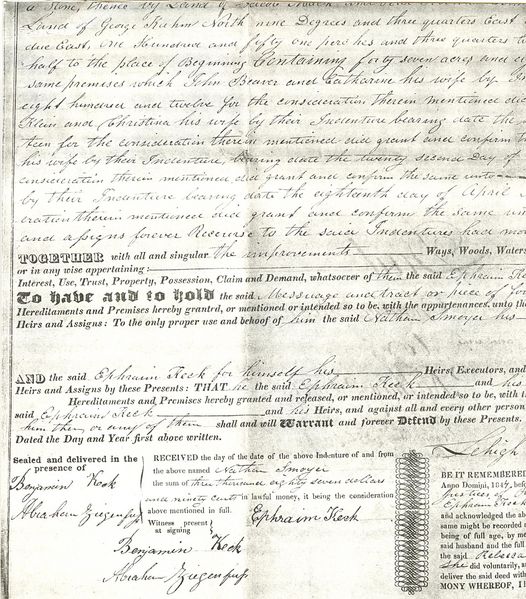 a Stone, thence by Land of
Land of George Kuhns North nine Degrees and three quarters East
due East, one Hundred and fifty one perches and three quarters to
half to the place of Beginning Containing forty seven acres and
same premises which John Beaver and Catharine his wife by
eight hundred and twelve for the consideration therein mentioned did
Klein and Christina his wife by their Indenture bearing date the
teen for the consideration therein mentioned did grant and confirm
his wife by their Indenture, bearing date the twenty second Day of
consideration therein mentioned did grant and confirm the same unto
by their Indenture bearing date the eighteenth day of April
eration therein mentioned did grant and confirm the same
and assigns forever Recourse to the said Indentures had
TOGETHER with all and singular the improvements Ways, Woods, Waters
or in any wise appertaining:
Interest, Use, Trust, Property, Possession, Claim and Demand, whatsoever of them the said Ephraim Ke
To have and to hold the said Messuage and tract or piece of
Hereditaments and Premises hereby granted, or mentioned or intended so to be, with the appurtenances, unto the
Heirs and Assigns: To the only proper use and behoof of him the said Nathan Smoyer his
AND the said Ephraim Keck for himself his Heirs, Executors, and
Heirs and Assigns by these Presents: THAT he the said Ephraim Keck and his
Hereditaments and Premises hereby granted and released, or mentioned, or intended so to be, with
said Ephraim Keck and his Heirs, and against all and every other person
him them or any of them shall and will Warrant and forever Defend by these Presents.
Dated the Day and Year first above written.
Sealed and delivered in the
presence of
Benjamin Keck
Abraham Ziegenfuss
RECEIVED the day of the date of the above Indenture of and from
the above named Nathan Smoyer
the sum of three thousand eighty seven dollars
and ninety cents in lawful money, it being the consideration
above mentioned in full.
Witness present
at signing
Ephraim Keck
Benjamin Keck
Abraham Ziegenfuss
Lehigh
BE IT REMEMBERED
Anno Domini, 1847, bef
Ephraim Keck
and acknowledged the abo
same might be recorded
being of full age, by me
said husband and the full
the said Rebecca
She did voluntarily, a
deliver the said deed with
MONY WHEREOF, I